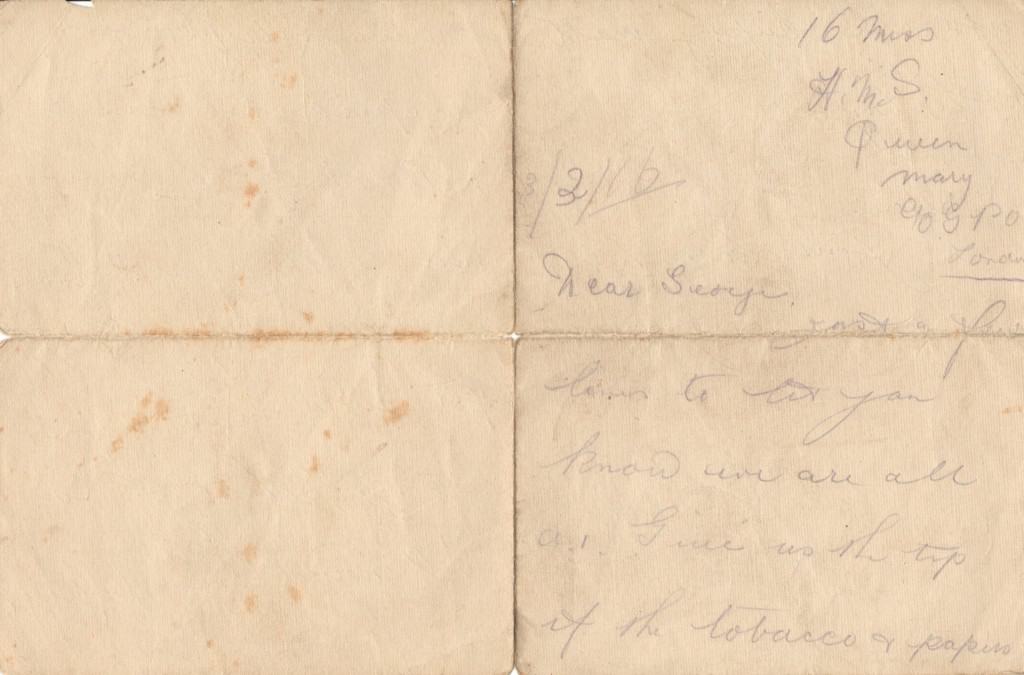 16 Mess
H.M.S.
Queen
Mary
C/o G P O
London
3/2/16
Dear George,
Just a few
lines to let you
know we are all
a.1. Give us the tip
if the tobacco & papers